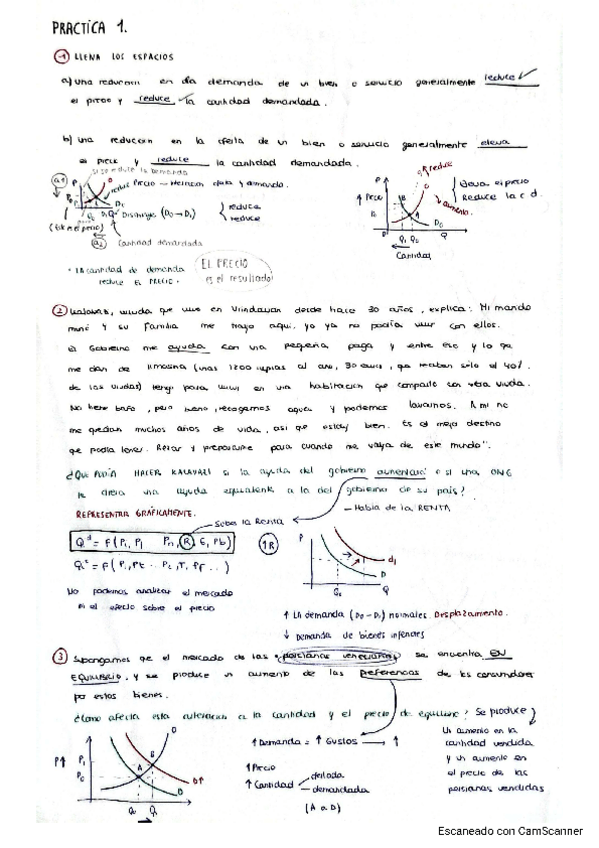 PRACTICA 1.
1 LLENA LOS ESPACIOS
a) una reduccion en la demanda de un bien o servicio generalmente reduce
el precio y reduce la cantidad demandada.
b) una reduccion en la oferta de un bien o servicio generalmente eleva
el precio y reduce la cantidad demandada.
si se reduce la demanda
reduce Precio
oferta y demanda.
Disminuye (D0 → D1)
reduce
reduce
Cantidad demandada
· La cantidad de demanda
reduce EL PRECIO.
EL PRECIO
es el resultado
reduce
aumento.
↑ Precio
Cantidad
Eleva el precio
Reduce la c.d.
2 viuda que vive en Vrindavan desde hace 30 años, explica: Mi marido
murió y su familia me trajo aquí, yo ya no podía vivir con ellos.
El Gobierno me ayuda con una pequeña paga y entre eso y lo que
me dan de limosna (unas 1200 rupias al año, 30 euros, que reciben sólo el 40%
de las viudas) tengo para vivir en una habitacion que comparto con otra viuda.
No tiene baño, pero bueno, recogemos agua y podemos lavarnos. A mi no
me quedan muchos años de vida, asi que estoy bien. Es el mejor destino
que podía tener. Rezar y prepararme para cuando me vaya de este mundo".
¿Que podía HACER KALAVATI si la ayuda del gobierno aumentara o si una ONG
le diera una ayuda equivalente a la del gobierno de su país?
REPRESENTAR GRÁFICAMENTE.
Sobre la Renta
– Habla de la RENTA
No podemos analizar el mercado
ni el efecto sobre el precio
↑ La demanda (D0 – D1) normales. Desplazamiento.
↓ Demanda de bienes inferiores
3 Supongamos que el mercado de las persianas venecianas se encuentra EN
EQUILIBRIO, y se produce un aumento de las preferencias de los consumidores
por estos bienes.
¿Cómo afecta esta alteracion a la cantidad y el precio de equilibrio? Se produce
↑ Demanda = ↑ Gustos → ↑
↑ Precio
↑ Cantidad
ofertada
demandada
Un aumento en la
cantidad vendida
y un aumento en
el precio de las
persianas vendidas
Escaneado con CamScanner